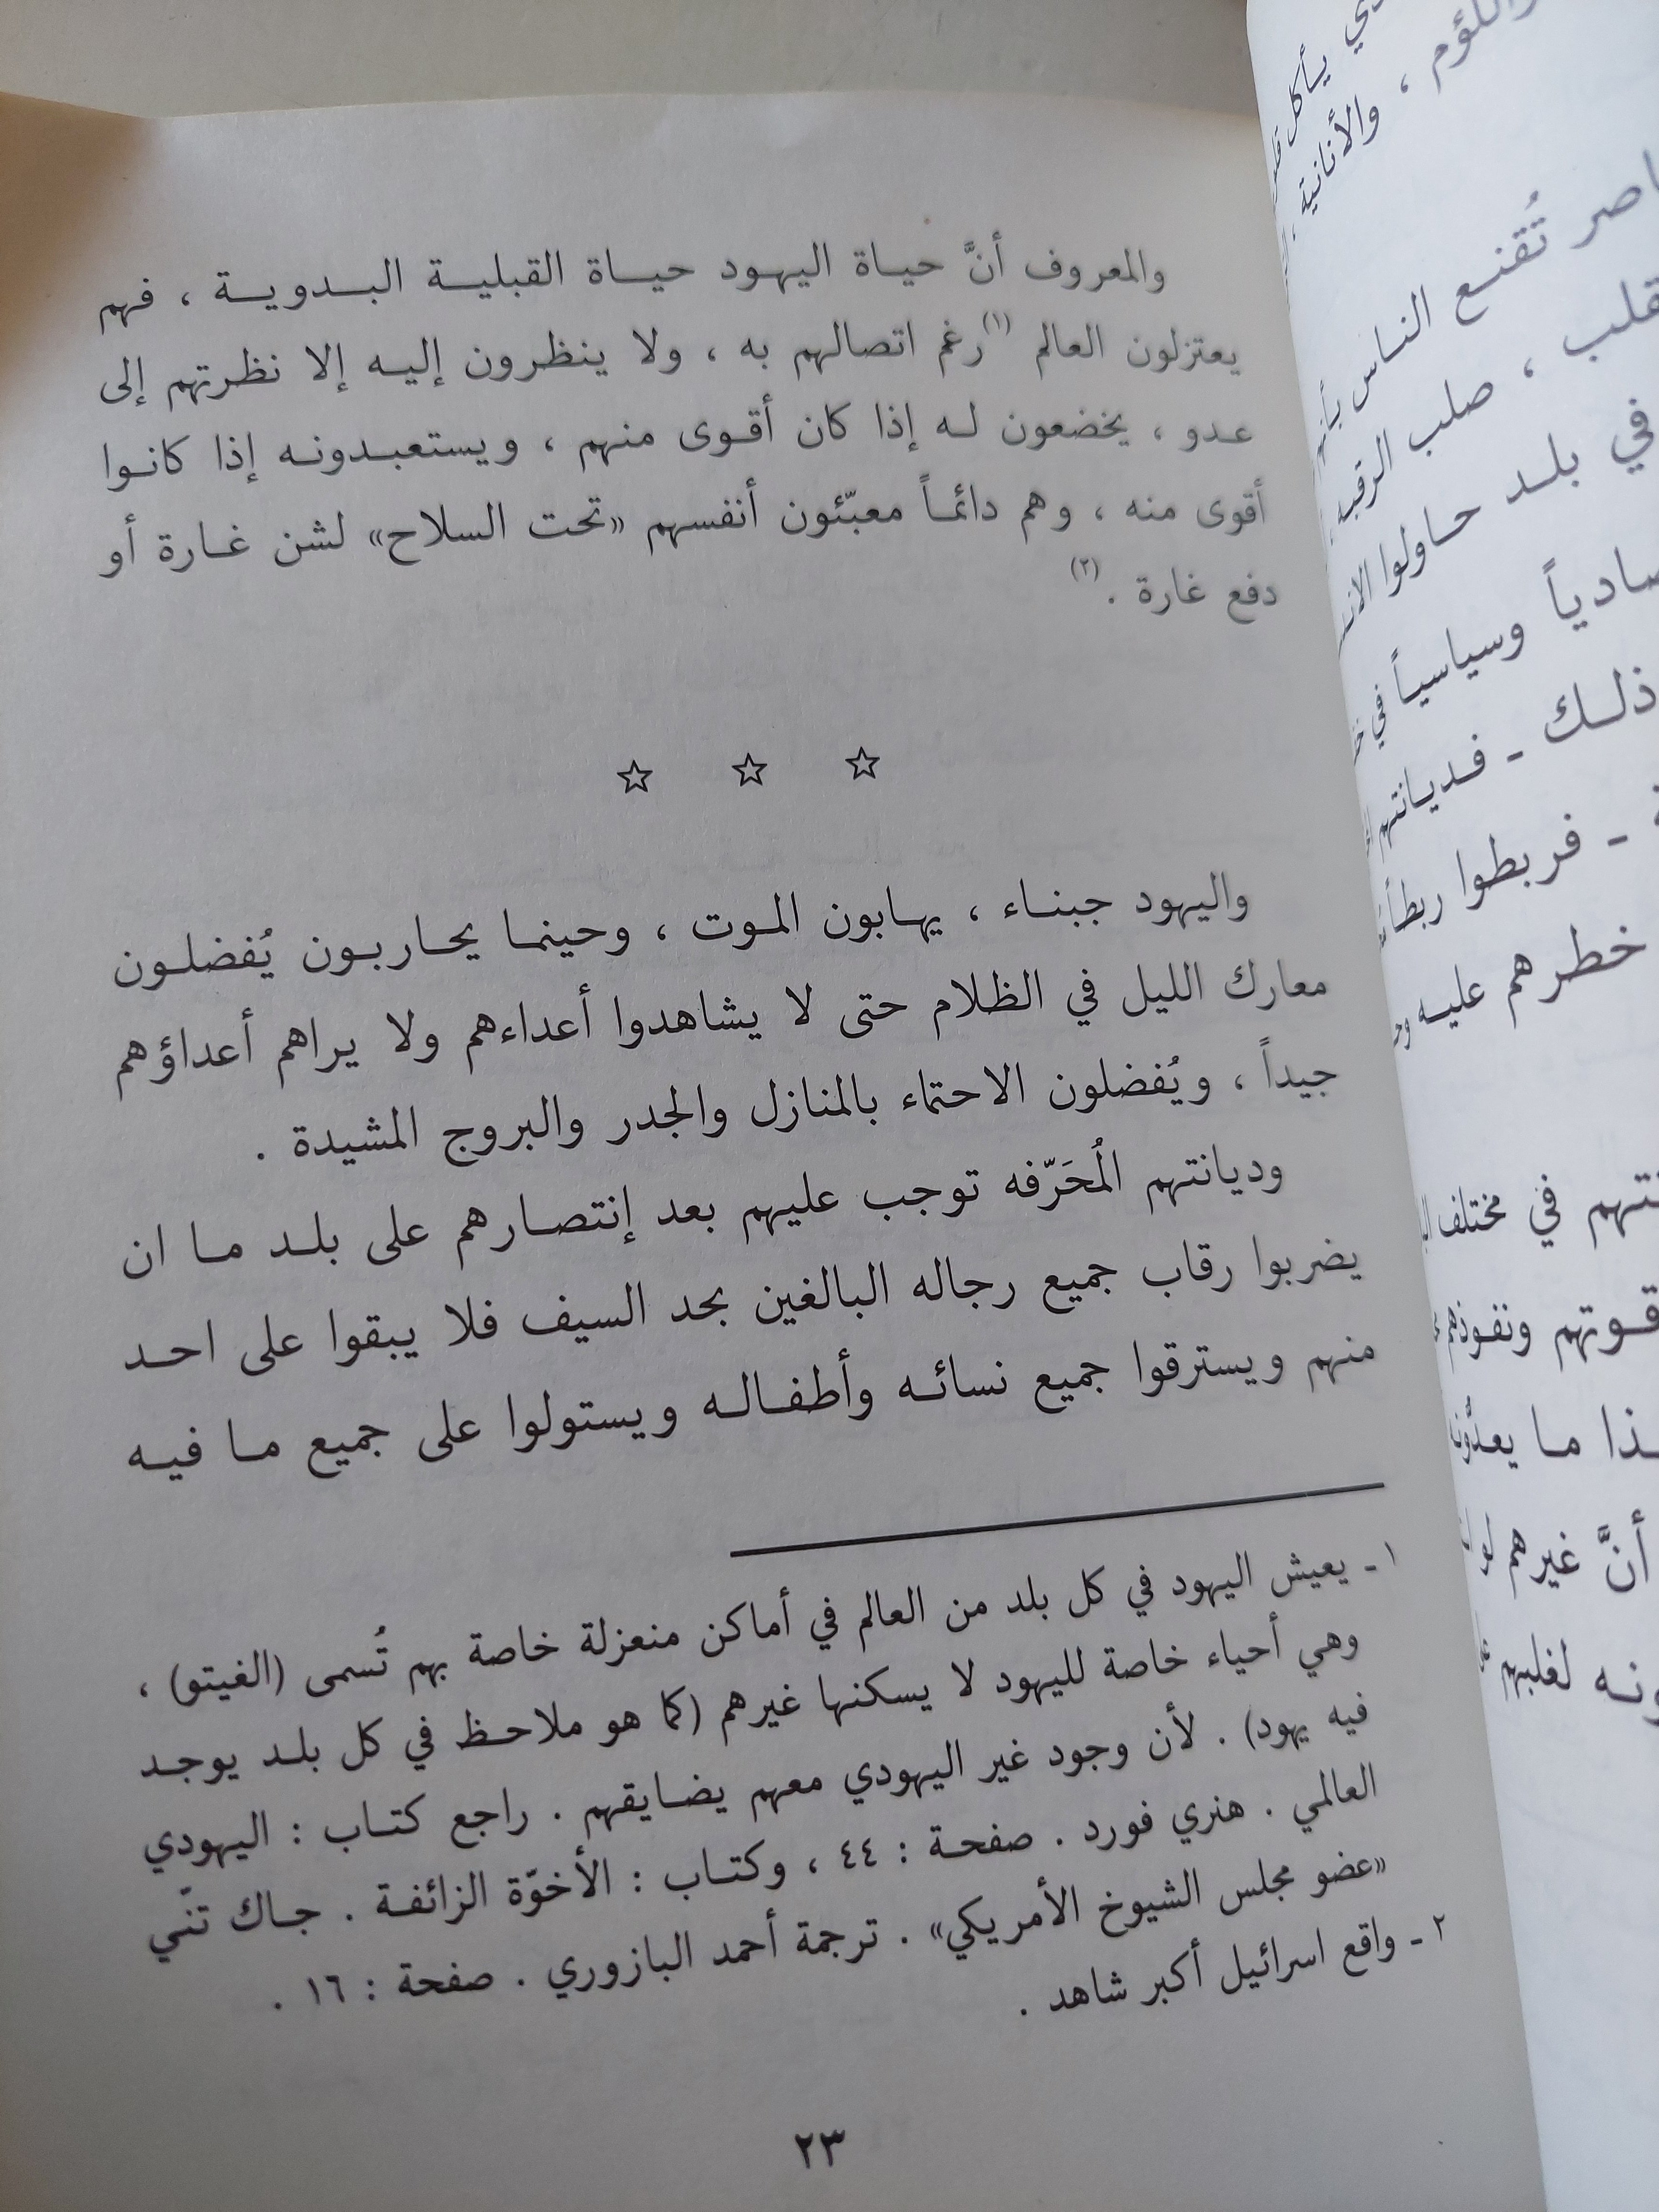 والمعروف أنَّ حياة اليهود حياة القبلية البدوية ، فهم
يعتزلون العالم (١) رغم اتصالهم به ، ولا ينظرون إليه إلا نظرتهم إلى
عدو ، يخضعون له إذا كان أقوى منهم ، ويستعبدونه إذا كانوا
أقوى منه ، وهم دائماً معبّئون أنفسهم «تحت السلاح» لشن غارة أو
دفع غارة . (٢)
☆ ☆ ☆
واليهود جبناء ، يهابون الموت ، وحينما يحاربون يُفضلون
معارك الليل في الظلام حتى لا يشاهدوا أعداءهم ولا يراهم أعداؤهم
جيداً ، ويُفضلون الاحتماء بالمنازل والجدر والبروج المشيدة .
وديانتهم المُحَرّفه توجب عليهم بعد إنتصارهم على بلد ما ان
يضربوا رقاب جميع رجاله البالغين بحد السيف فلا يبقوا على احد
منهم ويسترقوا جميع نسائه وأطفاله ويستولوا على جميع ما فيه
١ - يعيش اليهود في كل بلد من العالم في أماكن منعزلة خاصة بهم تُسمى (الغيتو) ،
وهي أحياء خاصة لليهود لا يسكنها غيرهم (كما هو ملاحظ في كل بلد يوجد
فيه يهود) . لأن وجود غير اليهودي معهم يضايقهم . راجع كتاب : اليهودي
العالمي . هنري فورد . صفحة : ٤٤ ، وكتاب : الأخوّة الزائفة . جاك تنّي
«عضو مجلس الشيوخ الأمريكي» . ترجمة أحمد البازوري . صفحة : ١٦ .
٢ - واقع اسرائيل أكبر شاهد .
٢٣
واللؤم ، والأنانية
تُقنع الناس
صلب الرقبة
في بلد حاولوا
وسياسياً في
ذلك - فديانتهم
- فربطوا
خطرهم عليه
في مختلف
قوتهم ونفوذهم
ما يعدّون
أنَّ غيرهم
لغلبهم